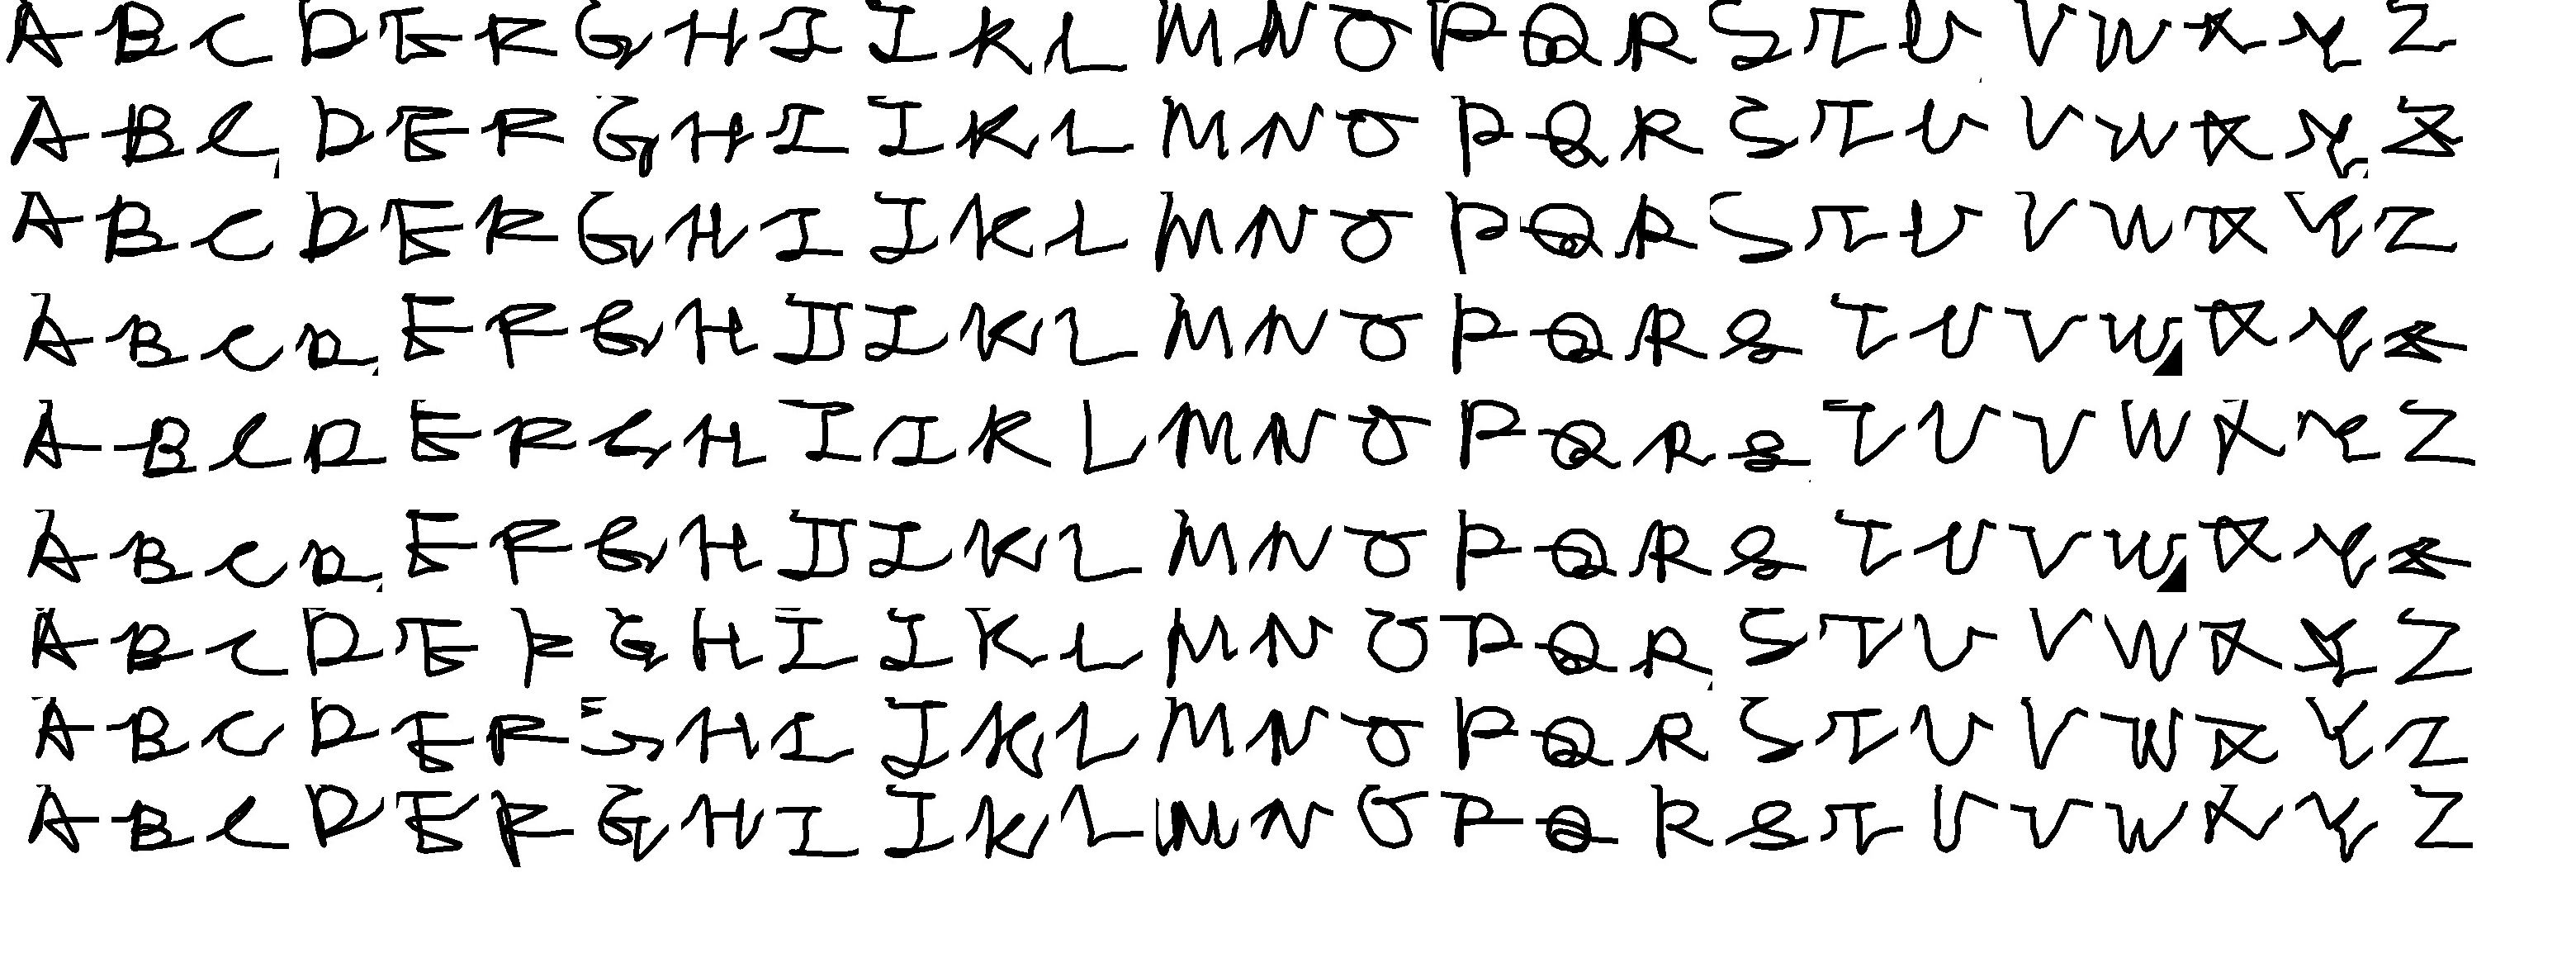 A B C D E F G H I J K L M N O P Q R S T U V W X Y Z
A B C D E F G H I J K L M N O P Q R S T U V W X Y Z
A B C D E F G H I J K L M N O P Q R S T U V W X Y Z
A B C D E F G H I J K L M N O P Q R S T U V W X Y Z
A B C D E F G H I J K L M N O P Q R S T U V W X Y Z
A B C D E F G H I J K L M N O P Q R S T U V W X Y Z
A B C D E F G H I J K L M N O P Q R S T U V W X Y Z
A B C D E F G H I J K L M N O P Q R S T U V W X Y Z
A B C D E F G H I J K L M N O P Q R S T U V W X Y Z